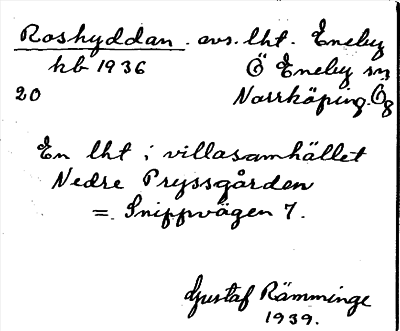 Roshyddan. avs. lht. Eneby
kb 1936 Ö Eneby sn
20 Norrköping. Ög
En lht i villasamhället
Nedre Pryssgården
= Snippvägen 7.
Gustaf Rämminge
1939.